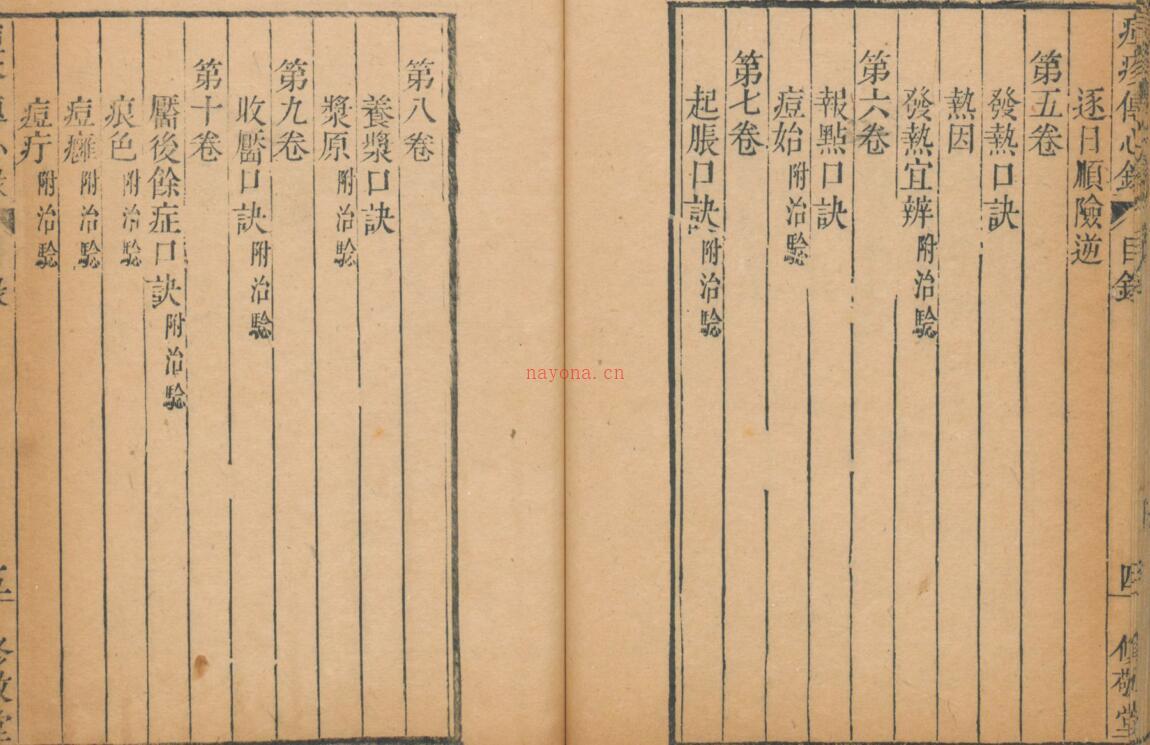 痘疹傳心錄 目錄 四 修敬堂
逐日順險逆
第五卷
發熱口訣
熱因
發熱宜辨附治驗
第六卷
報點口訣
痘始附治驗
第七卷
起脹口訣附治驗
第八卷
養漿口訣
漿原附治驗
第九卷
收靨口訣附治驗
第十卷
靨後餘症口訣附治驗
痕色附治驗
痘癰附治驗
痘疔附治驗
nayona.cn